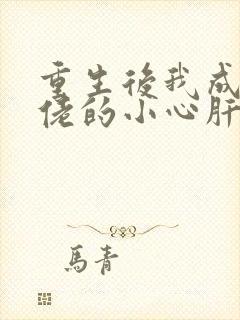 重生後我成
佬的小心肝
馬青